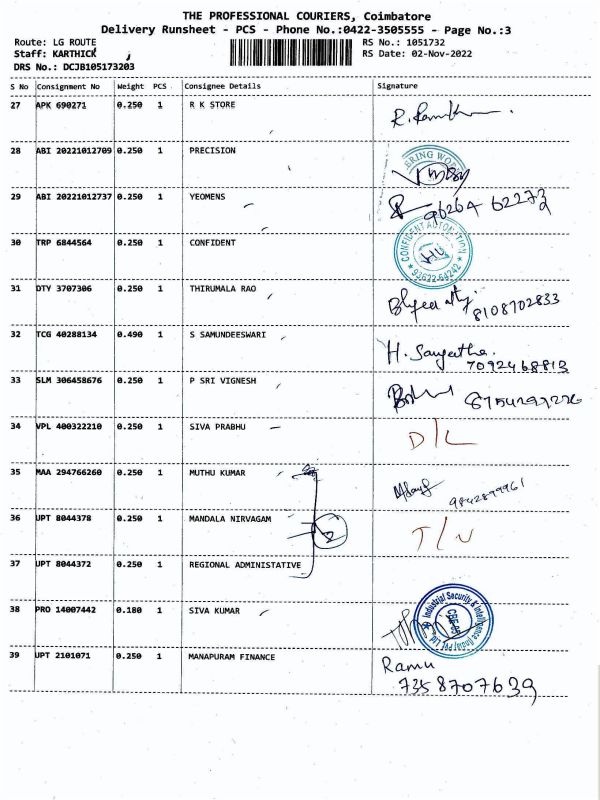 THE PROFESSIONAL COURIERS, Coimbatore
Delivery Runsheet - PCS - Phone No.:0422-3505555 - Page No.:3
Route: LG ROUTE RS No.: 1051732
Staff: KARTHICK RS Date: 02-Nov-2022
DRS No.: DCJB105173203
S No Consignment No Weight PCS Consignee Details Signature
27 APK 690271 0.250 1 R K STORE
28 ABI 20221012709 0.250 1 PRECISION
29 ABI 20221012737 0.250 1 YEOMENS 96264 62273
30 TRP 6844564 0.250 1 CONFIDENT CONFIDENT AUTOMATION * 93622-64242 *
31 DTY 3707306 0.250 1 THIRUMALA RAO 8108702833
32 TCG 40288134 0.490 1 S SAMUNDEESWARI H. Sangeetha.
7092468813
33 SLM 306458676 0.250 1 P SRI VIGNESH
34 VPL 400322210 0.250 1 SIVA PRABHU D/L
35 MAA 294766260 0.250 1 MUTHU KUMAR 9842899961
36 UPT 8044378 0.250 1 MANDALA NIRVAGAM 2 T/N
37 UPT 8044372 0.250 1 REGIONAL ADMINISTATIVE
38 PRO 14007442 0.180 1 SIVA KUMAR Industrial Security & Intelligence (India) Pvt. Ltd. CBE-05
39 UPT 2101071 0.250 1 MANAPURAM FINANCE Ramu
7358707639